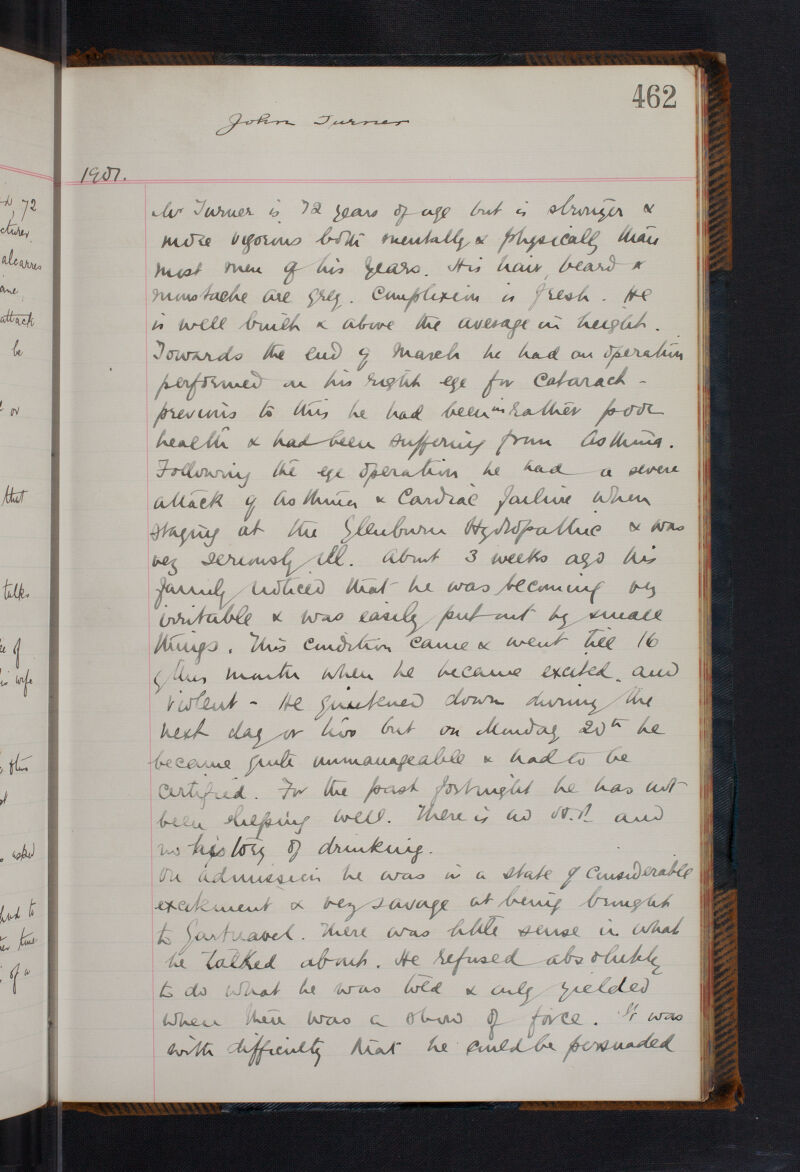 462
John Turner
1901.
Mr Turner is 72 years of age but is stronger &
more vigorous both mentally & physically than
most men of his years. His hair, beard &
moustache are grey. Complexion is fresh. He
is well built & above the average in height.
Towards the end of March he had an operation
performed on his right eye for Catarach -
previous to this he had been in rather poor
health & had been suffering from Asthma.
Following the eye operation he had a severe
attack of Asthma & Cardiac failure when
staying at the Glenburn Hydropathic & was
very seriously ill. About 3 weeks ago his
family noticed that he was becoming very
irritable & was easily put out by small
things. This condition came & went till 16
of this month when he became excited and
violent - He quietened down during the
next day or two but on Monday 20th he
became quite unmanageable & had to be
certified. For the past fortnight he has not
been sleeping well. There is no and
no history of drinking.
On admission he was in a state of considerable
excitement & very savage at being brought
to Gartnavel. There was little sense in what
he talked about. He refused absolutely
to do what he was told & only yielded
when there was a show of force. It was
with difficulty that he could be persuaded
72
attack
be
or
that
talks
of
wife
asked
had to
of a